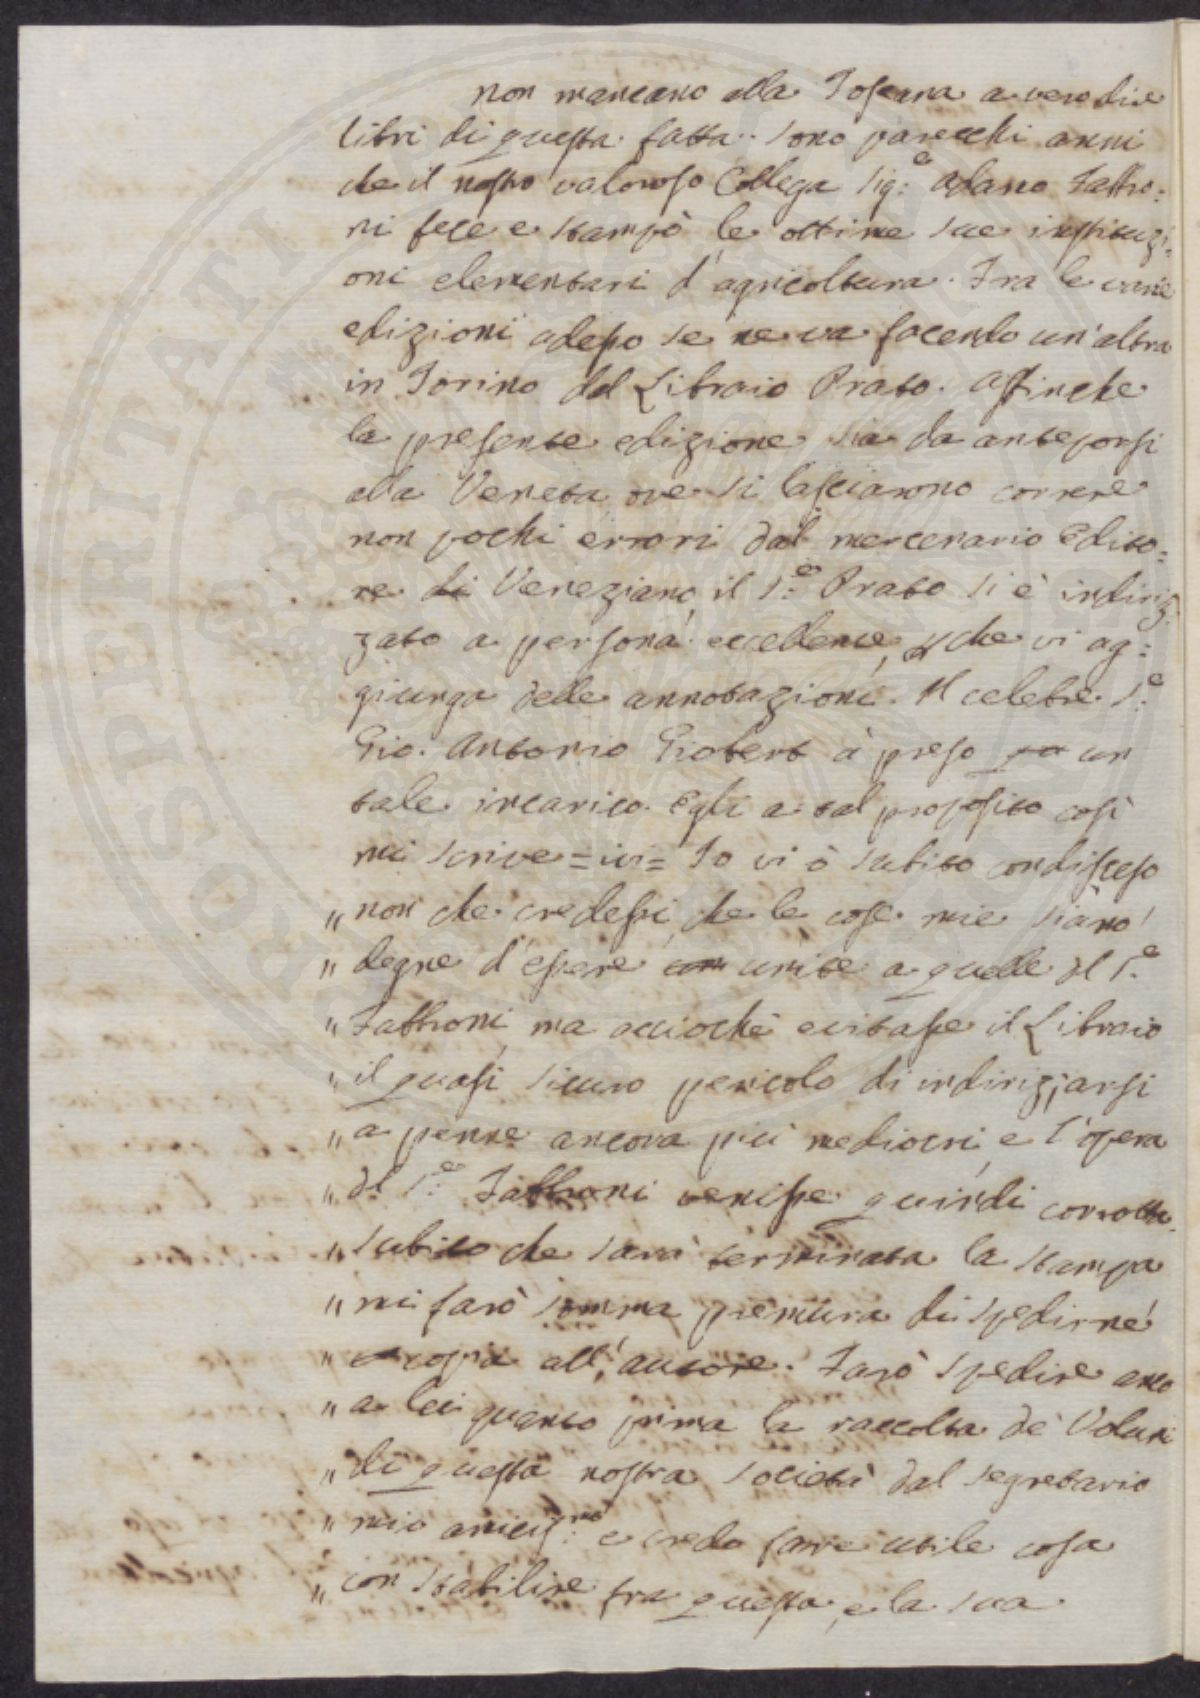 non mancano alla Toscana a vero dire
libri di questa fatta. Sono parecchi anni
che il nostro valoroso Collega Sig:e Adamo Fabbro:
ni fece e stampò le ottime sue instituzi:
oni elementari d'agricoltura. Fra le varie
edizioni adesso se ne va facendo un'altra
in Torino dal Libraio Prato. Affinche
la presente edizione sia da anteporsi
alla Veneta ove si lasciarono correre
non pochi errori dal mercenario Edito:
re di Veneziano, il S:e Prato si è indiriz
zato a persona eccellente, che vi ag:
giunga delle annotazioni. Il celebre S:e
Gio. Antonio Giobert à preso un
tale incarico. Egli a tal proposito così
mi scrive =ivi= Io vi ò subito condisceso
" non che credessi che le cose mie siano
" degne d'essere unite a quelle del S:e
" Fabbroni, ma acciochè evitasse il Libraio
" il quasi sicuro pericolo di indirizzarsi
" a penne ancora più mediocri, e l'opera
" del S:e Fabbroni venisse quindi corrotta.
" Subito che sarà terminata la stampa
" mi farò somma premura di spedirne
" copia all'autore. Farò spedire anco
" a lei quanto prima la raccolta de' Volumi
" di questa nostra società dal Segretario
" mio amicis:mo e credo fare utile cosa
" con stabilire fra questa, e la sua